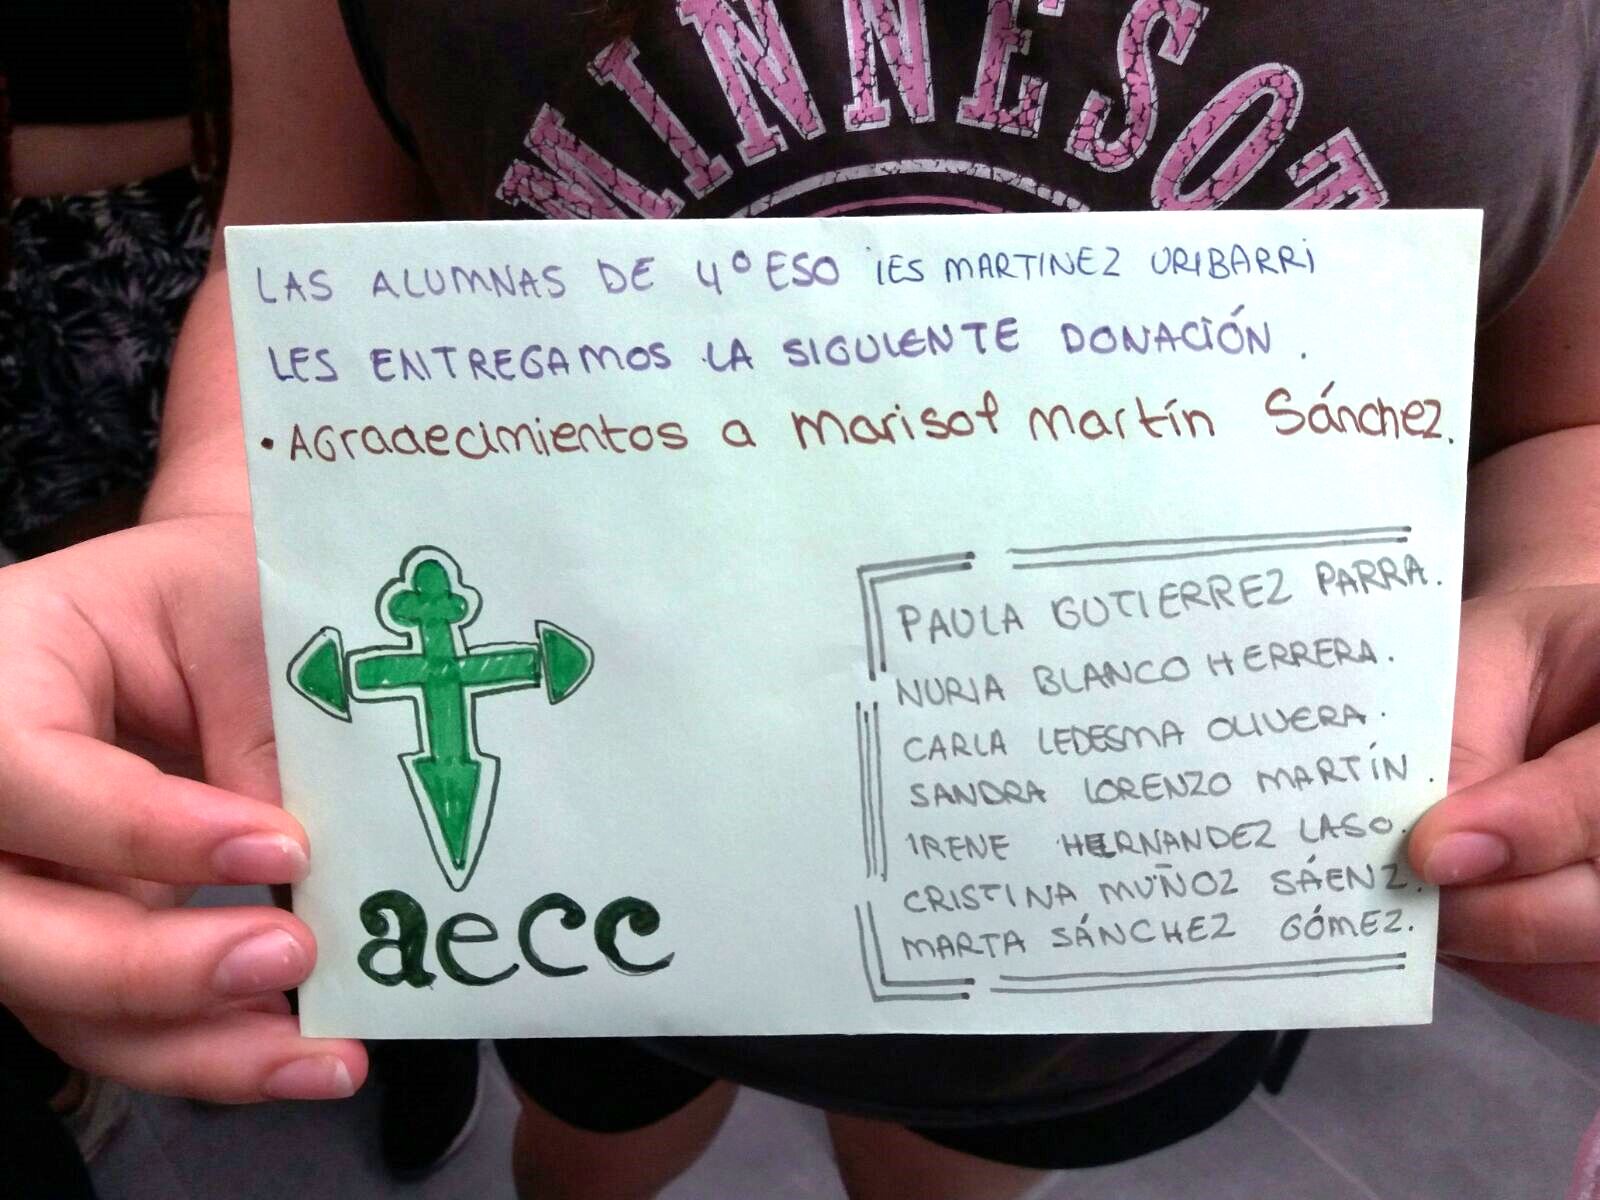 MINNESOT
LAS ALUMNAS DE 4º ESO IES MARTINEZ URIBARRI
LES ENTREGAMOS LA SIGUIENTE DONACIÓN.
• AGradecimientos a Marisol Martín Sánchez.
PAULA GUTIERREZ PARRA.
NURIA BLANCO HERRERA.
CARLA LEDESMA OLIVERA.
SANDRA LORENZO MARTÍN.
IRENE HERNANDEZ LASO.
CRISTINA MUÑOZ SÁENZ.
MARTA SÁNCHEZ GÓMEZ.
aecc